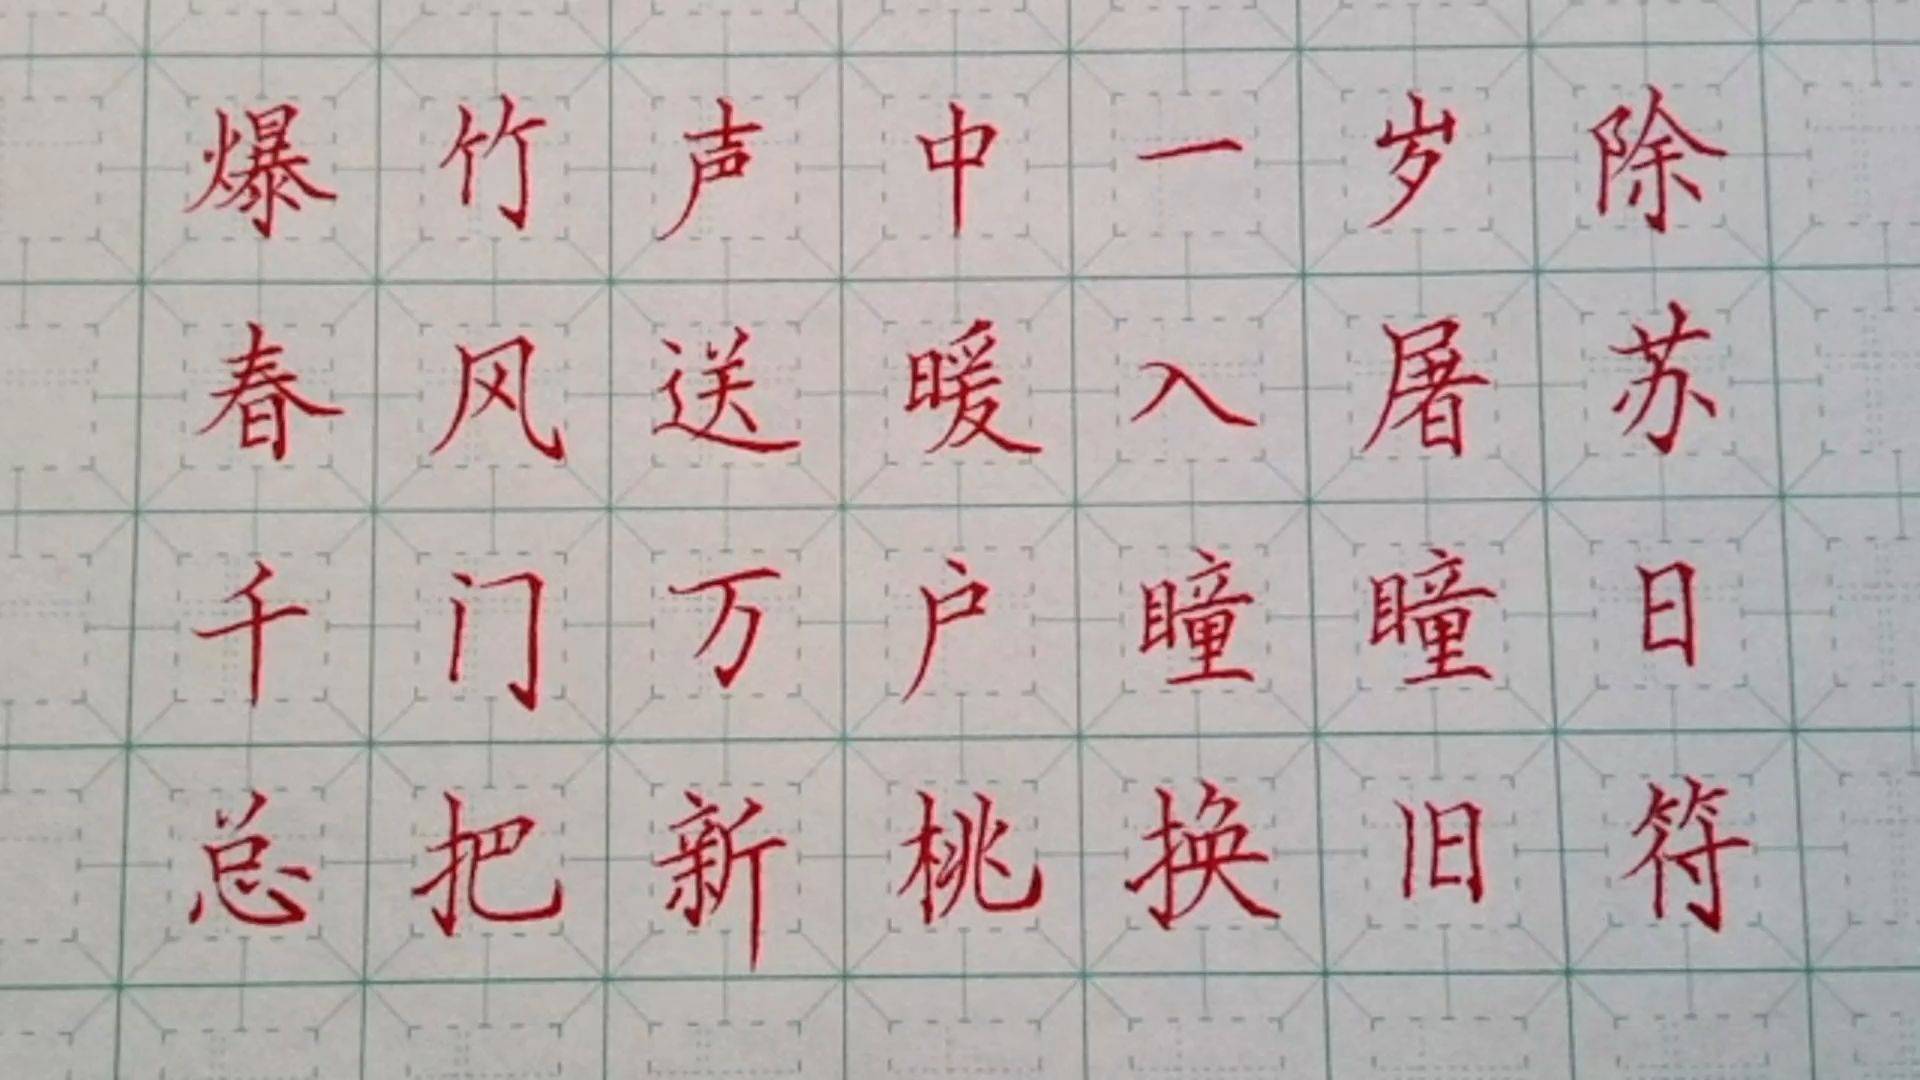 爆竹声中一岁除
春风送暖入屠苏
千门万户瞳瞳日
总把新桃换旧符